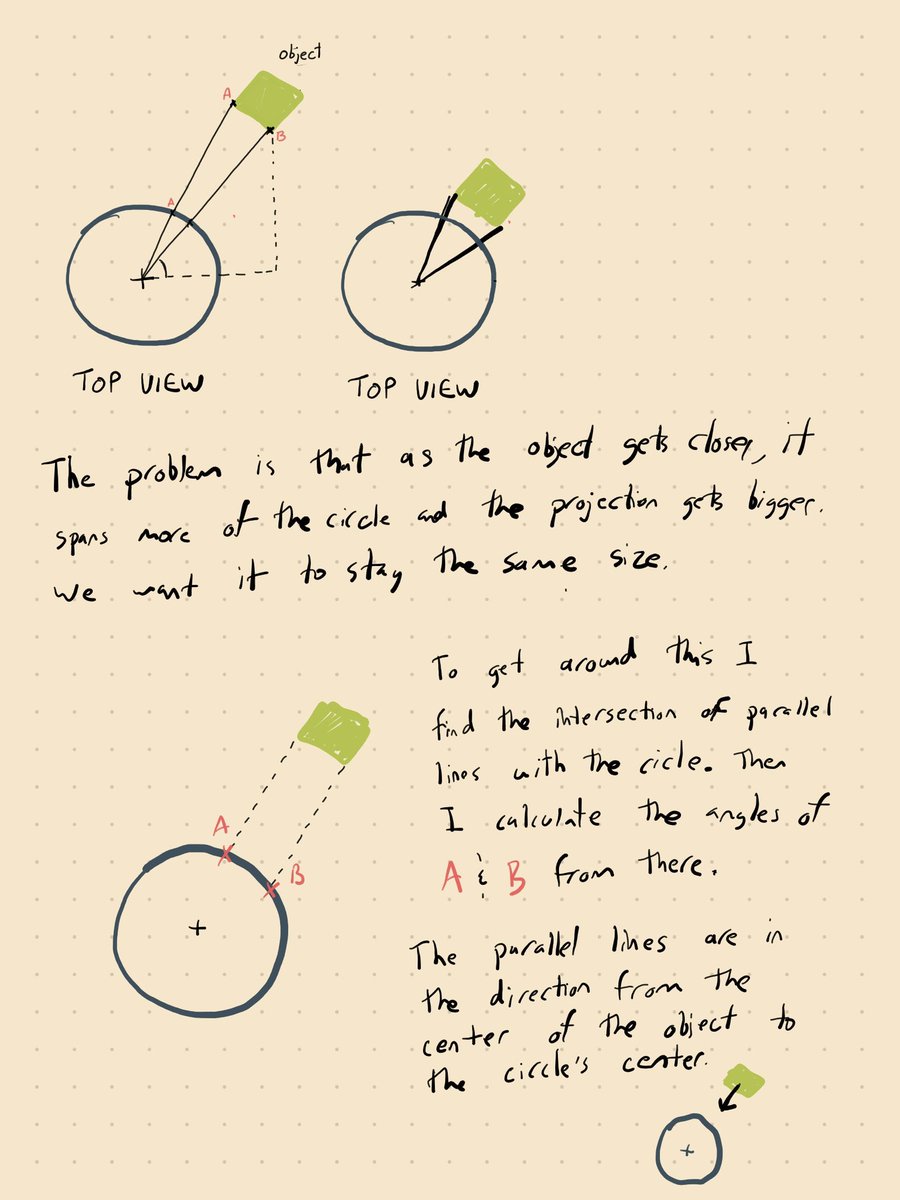 object
A
B
A
TOP VIEW
TOP VIEW
The problem is that as the object gets closer, it
spans more of the circle and the projection gets bigger.
We want it to stay the same size.
To get around this I
find the intersection of parallel
lines with the cicle. Then
I calculate the angles of
A & B from there.
A
B
The parallel lines are in
the direction from the
center of the object to
the circle's center.